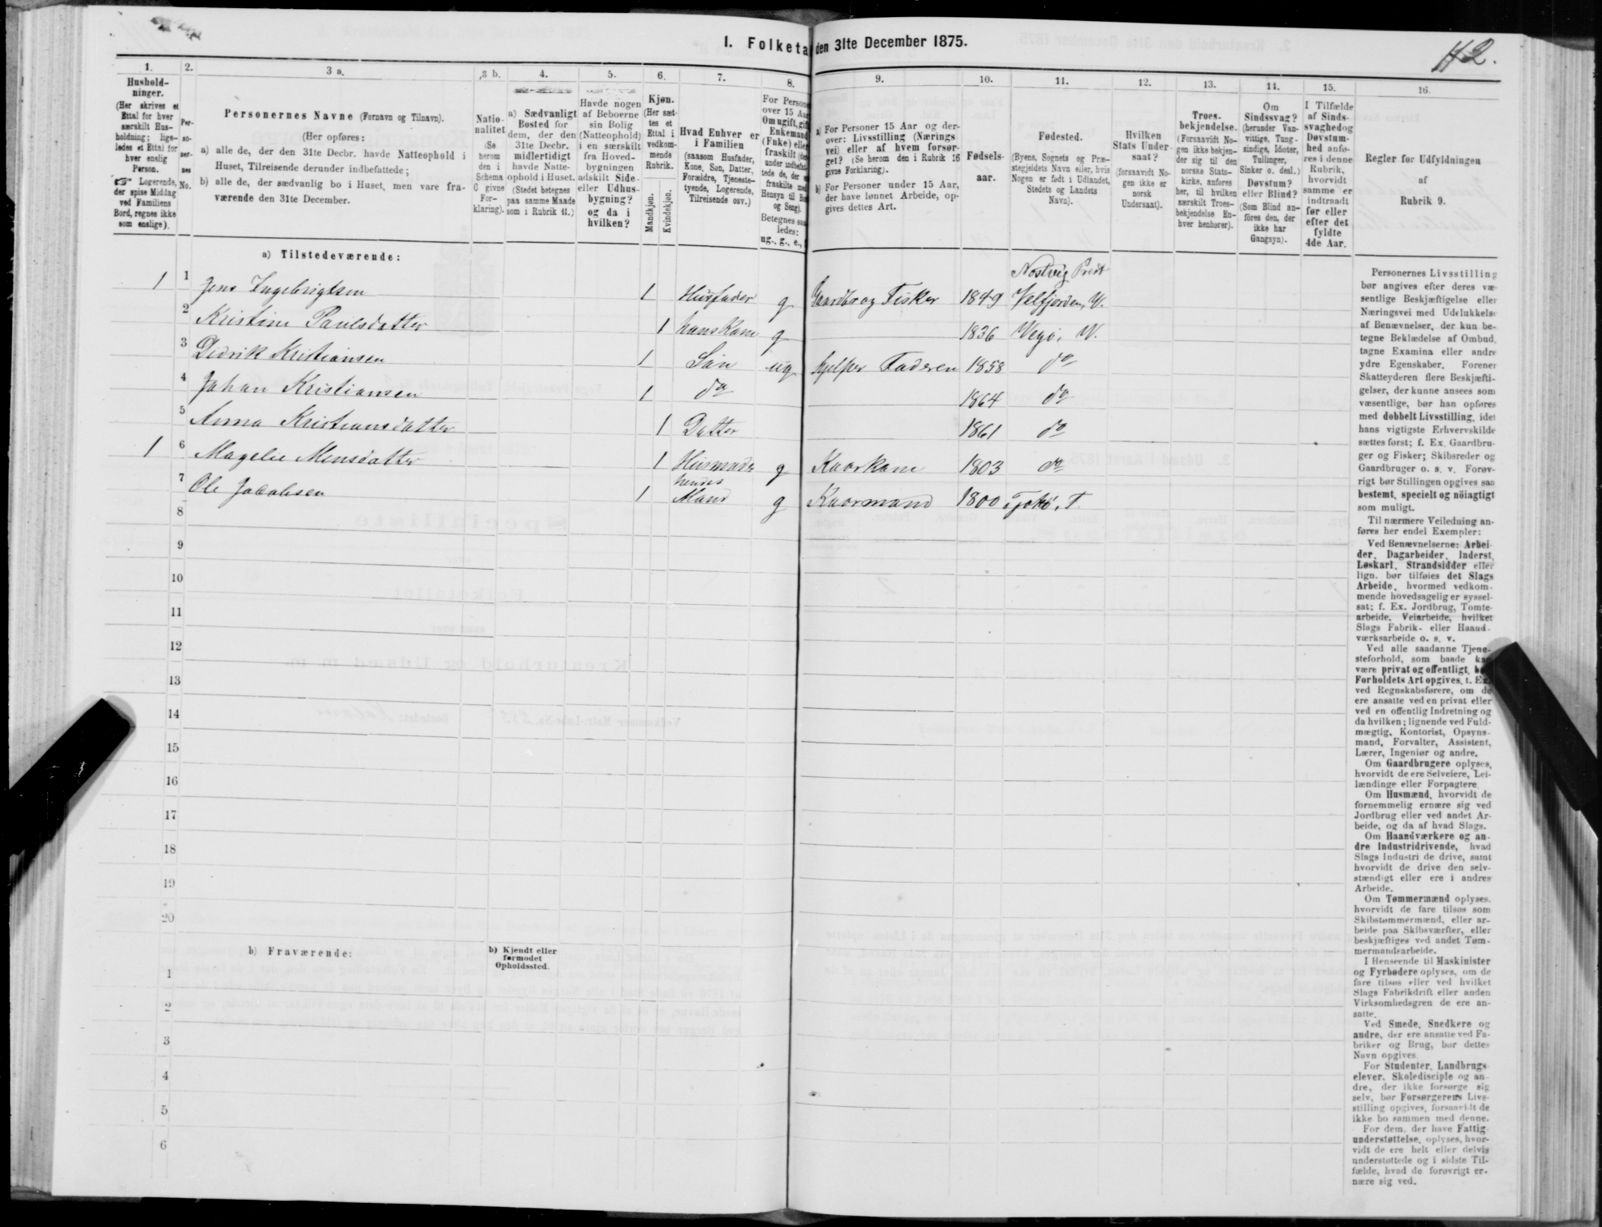 1. Folketa den 31te December 1875.
112.
1.
Hushold-
ninger.
(Her skrives et
Ettal for hver
særskilt Hus-
holdning; lige-
ledes et Ettal for
hver enslig
Person.
☞ Logerende,
der spise Middag
ved Familiens
Bord, regnes ikke
som enslige).
2.
Per-
so-
ner-
nes
No.
3 a.
Personernes Navne (Fornavn og Tilnavn).
(Her opføres:
a) alle de, der den 31te Decbr. havde Natteophold i
Huset, Tilreisende derunder indbefattede;
b) alle de, der sædvanlig bo i Huset, men vare fra-
værende den 31te December.
3 b.
Natio-
nalitet
(Se
herom
den i
Schema
C givne
For-
klaring).
4.
a) Sædvanligt
Bosted for
dem, der den
31te Decbr.
midlertidigt
havde Natte-
ophold i Huset.
(Stedet betegnes
paa samme Maade
som i Rubrik 11.)
5.
Havde nogen
af Beboerne
sin Bolig
(Natteophold)
i en særskilt
fra Hoved-
bygningen
adskilt Side-
eller Udhus-
bygning?
og da i
hvilken?
6.
Kjøn.
(Her sæt-
tes et
Ettal i
vedkom-
mende
Rubrik.
Mandkjøn.
Kvindekjøn.
7.
Hvad Enhver er
i Familien
(saasom Husfader,
Kone, Søn, Datter,
Forældre, Tjeneste-
tyende, Logerende,
Tilreisende osv.)
8.
For Person
over 15 Aar
Om ugift, gift
Enkemand
(Enke) elle
fraskilt
Betegnes
ledes:
ug., g., e.,
9.
a) For Personer 15 Aar og der-
over: Livsstilling (Nærings
vei) eller af hvem forsør-
get? (Se herom den i Rubrik 16
givne Forklaring).
b) For Personer under 15 Aar,
der have lønnet Arbeide, op-
gives dettes Art.
10.
Fødsels-
aar.
11.
Fødested.
(Byens, Sognets og Præ-
stegjeldets Navn eller, hvis
Nogen er født i Udlandet,
Stedets og Landets
Navn).
12.
Hvilken
Stats Under-
saat?
(forsaavidt No-
gen ikke er
norsk
Undersaat).
13.
Troes-
bekjendelse.
(Forsaavidt No-
gen ikke bekjen-
der sig til den
norske Stats-
kirke, anføres
her, til hvilken
særskilt Troes-
bekjendelse En-
hver henhører).
14.
Om
Sindssvag?
(herunder Van-
vittige, Tung-
sindige, Idioter,
Tullinger,
Sinker o. desl.)
Døvstum?
eller Blind?
(Som Blind an-
føres den, der
ikke har
Gangsyn).
15.
I Tilfælde
af Sinds-
svaghed og
Døvstum-
hed anfø-
res i denne
Rubrik,
hvorvidt
samme er
indtraadt
før eller
efter det
fyldte
4de Aar.
16.
Regler før Udfyldningen
af
Rubrik 9.
a) Tilstedeværende:
1 1 Jens Ingebrigtsen 1 Husfader g Gaardbr og Fisker 1849 Velfjorden, V.
2 Kristine Paulsdatter 1 hans Kone g 1836 Vegø, V.
3 Didrik Kristiansen 1 Søn ug hjelper Faderen 1858 do
4 Johan Kristiansen 1 do 1864 do
5 Anna Kristiansdatter 1 Datter 1861 do
1 6 Magelie Mensdatter 1 g Kaarkone 1803 do
7 Ole Jacobsen 1 hendes Mand g Kaarmand 1800
8
9
10
11
12
13
14
15
16
17
18
19
20
b) Fraværende:
b) Kjendt eller
formodet
Opholdssted.
1
2
3
4
5
6
Personernes Livsstilling
bør angives efter deres væ-
sentlige Beskjæftigelse eller
Næringsvei med Udelukkelse
af Benævnelser, der kun be-
tegne Beklædelse af Ombud,
tagne Examina eller andre
ydre Egenskaber. Forener
Skatteyderen flere Beskjæfti-
gelser, der kunne ansees som
væsentlige, bør han opføres
med dobbelt Livsstilling, idet
hans vigtigste Erhvervskilde
sættes først; f. Ex. Gaardbru-
ger og Fisker; Skibsreder og
Gaardbruger o. s. v. Forøv-
rigt bør Stillingen opgives saa
bestemt, specielt og nöiagtigt
som muligt.
Til nærmere Veiledning an-
føres her endel Exempler:
Ved Benævnelserne: Arbei-
der, Dagarbeider, Inderst,
Løskarl, Strandsidder eller
lign. bør tilføies det Slags
Arbeide, hvormed vedkom-
mende hovedsagelig er syssel-
sat; f. Ex. Jordbrug, Tomte-
arbeide, Veiarbeide, hvilket
Slags Fabrik- eller Haand-
værksarbeide o. s. v.
Ved alle saadanne Tjene-
steforhold, som baade
være privat og offentligt,
Forholdets Art opgives, t. Ex.
ved Regnskabsførere, om de
ere ansatte ved en privat eller
ved en offentlig Indretning og
da hvilken; lignende ved Fuld-
mægtig, Kontorist, Opsyns-
mand, Forvalter, Assistent,
Lærer, Ingeniør og andre.
Om Gaardbrugere oplyses,
hvorvidt de ere Selveiere, Lei-
lændinge eller Forpagtere.
Om Husmænd, hvorvidt de
fornemmelig ernære sig ved
Jordbrug eller ved andet Ar-
beide, og da af hvad Slags.
Om Haandværkere og an-
dre Industridrivende, hvad
Slags Industri de drive, samt
hvorvidt de drive den selv-
stændigt eller ere i andres
Arbeide.
Om Tømmermænd oplyses,
hvorvidt de fare tilsøs som
Skibstømmermænd, eller ar-
beide paa Skibsværfter, eller
beskjæftiges ved andet Tøm-
mermandsarbeide.
I Henseende til Maskinister
og Fyrbødere oplyses, om de
fare tilsøs eller ved hvilket
Slags Fabrikdrift eller anden
Virksomhedsgren de ere an-
satte.
Ved Smede, Snedkere og
andre, der ere ansatte ved Fa-
briker og Brug, bør dettes
Navn opgives.
For Studenter, Landbrugs-
elever, Skoledisciple og an-
dre, der ikke forsørge sig
selv, bør Forsørgerens Livs-
stilling opgives, forsaavidt de
ikke bo sammen med denne.
For dem, der have Fattig-
understøttelse, oplyses, hvor-
vidt de ere helt eller delvis
understøttede og i sidste Til-
fælde, hvad de forøvrigt er-
nære sig ved.